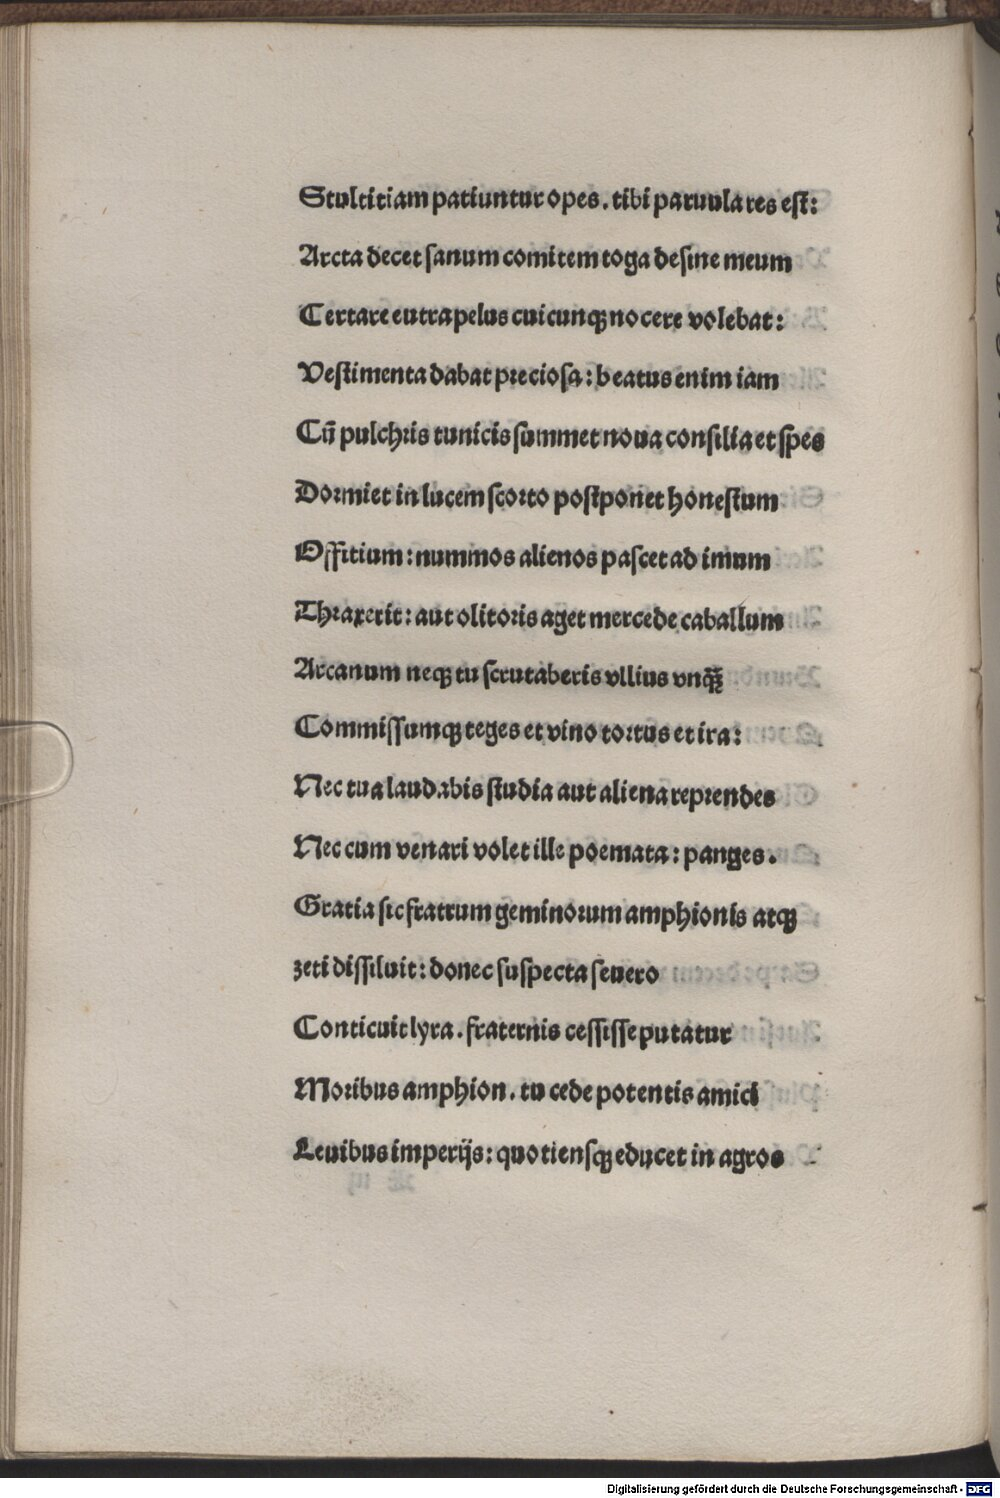 Stultitiam patiuntur opes. tibi paruula res est:
Arcta decet sanum comitem toga desine meum
Certare eutrapelus cuicunqꝫ nocere volebat:
Vestimenta dabat preciosa: beatus enim iam
Cū pulchris tunicis summet noua consilia et spes
Dormiet in lucem scorto postponet honestum
Offitium: nummos alienos pascet ad imum
Thraxerit: aut olitoris aget mercede caballum
Arcanum neqꝫ tu scrutaberis vllius vnqꝫ̄
Commissumqꝫ teges et vino tortus et ira:
Nec tua laudabis studia aut aliena reprendes
Nec cum venari volet ille poemata: panges.
Gratia sic fratrum geminorum amphionis atqꝫ
zeti dissiluit: donec suspecta seuero
Conticuit lyra. fraternis cessisse putatur
Moribus amphion. tu cede potentis amici
Leuibus imperijs: quotiensqꝫ educet in agros
Digitalisierung gefördert durch die Deutsche Forschungsgemeinschaft - DFG